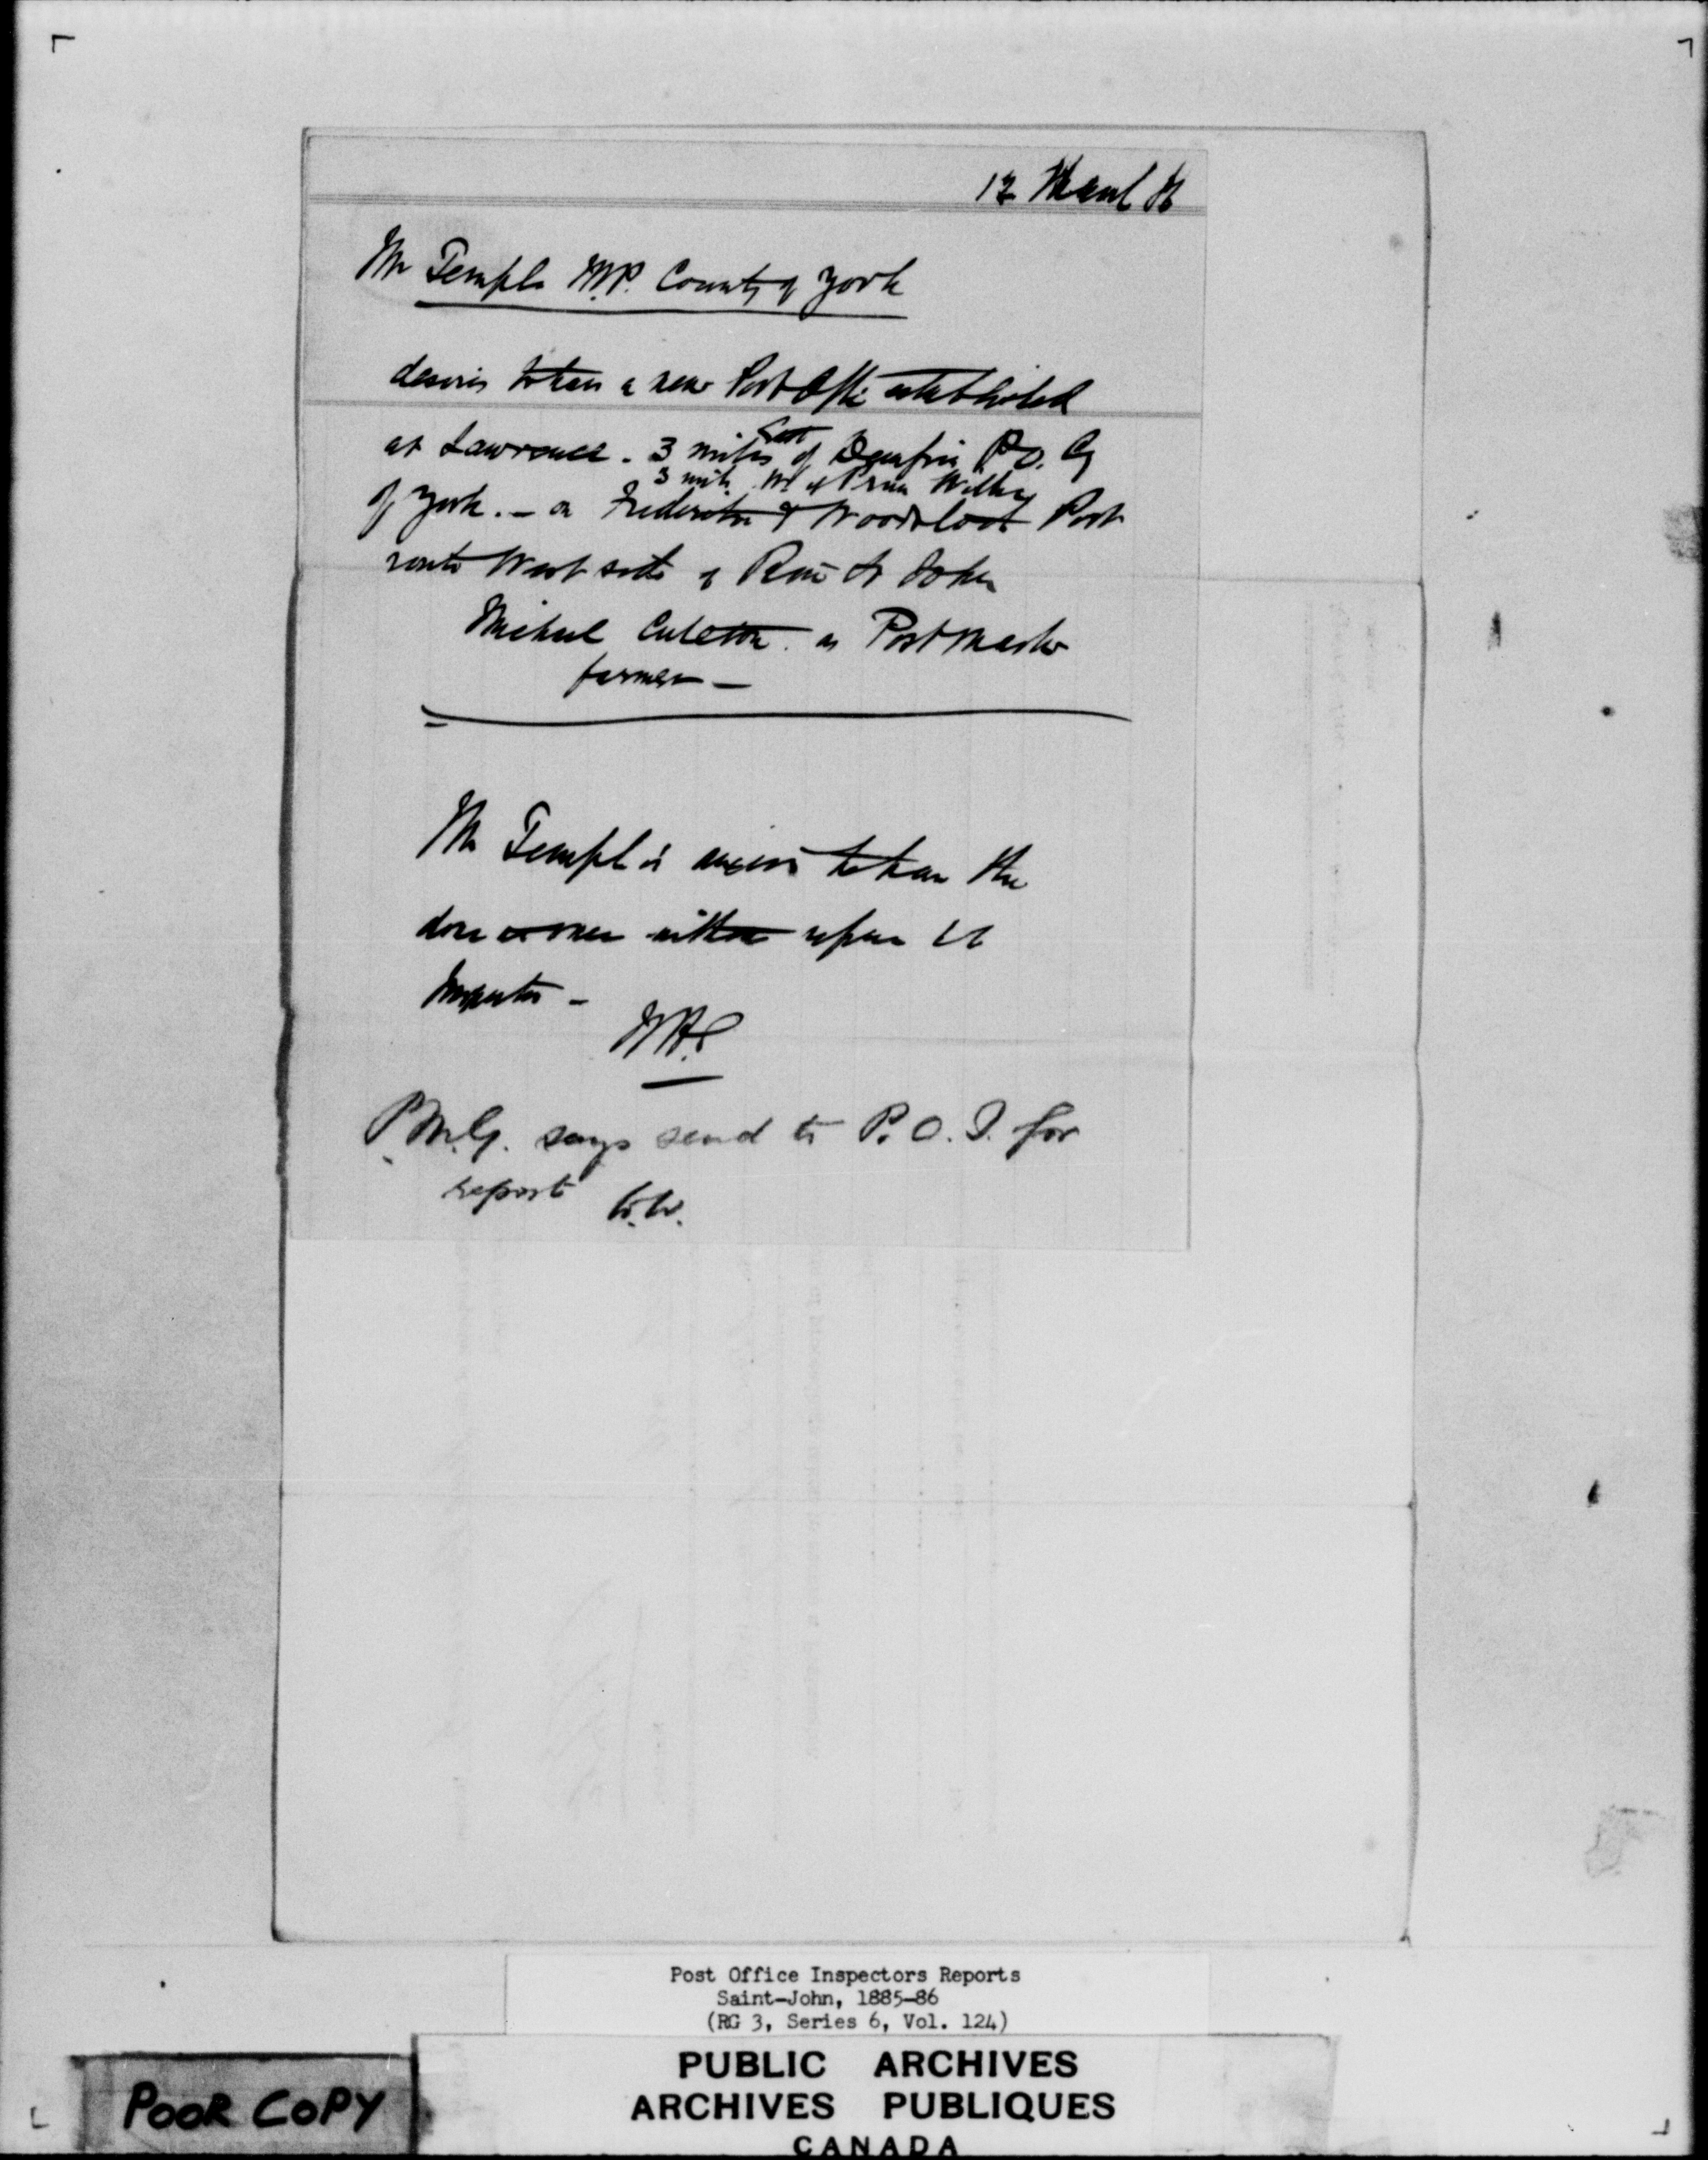 12 March 86
Mr Temple M.P. County of York
desires to have a new Post Office established
at Lawrence. 3 miles East of Dumfries P.O. Cy
3 mile W of Prince William
of York. - on Fredericton & Woodstock Post
route West side of River St John
Michael Culeton. as Post Master
farmer -
Mr Temple is anxious to have this
done at once without reference to
Inspector -
P.M.G. says send to P.O.I. for
report W.W.
Post Office Inspectors Reports
Saint-John, 1885-86
(RG 3, Series 6, Vol. 124)
PUBLIC ARCHIVES
ARCHIVES PUBLIQUES
CANADA
POOR COPY